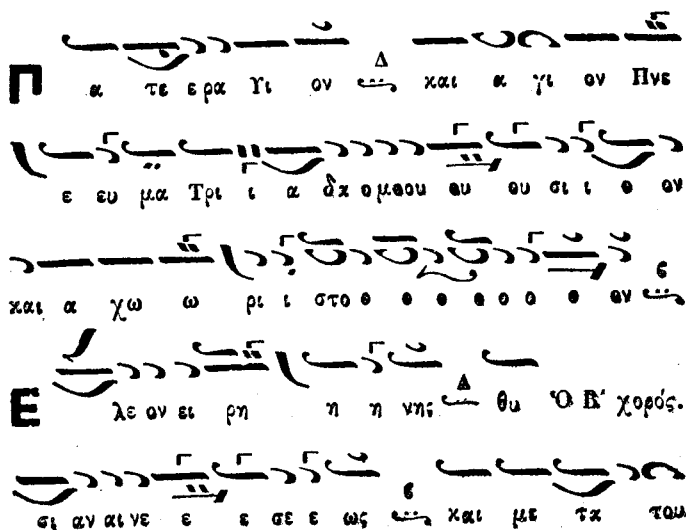 Π α τε ε ρα Υι ον Δ και α γι ον Πνε
ε ευ μα Τρι ι α δα ο μοου ου ου σι ι ο ον
και α χω ω ρι ι στο ο ο ο ο ο ο ο ον
Ε λε ον ει ρη η η νης Δ θυ Ὁ Β' χορός.
σι αν αι νε ε ε σε ε ως και με τα του